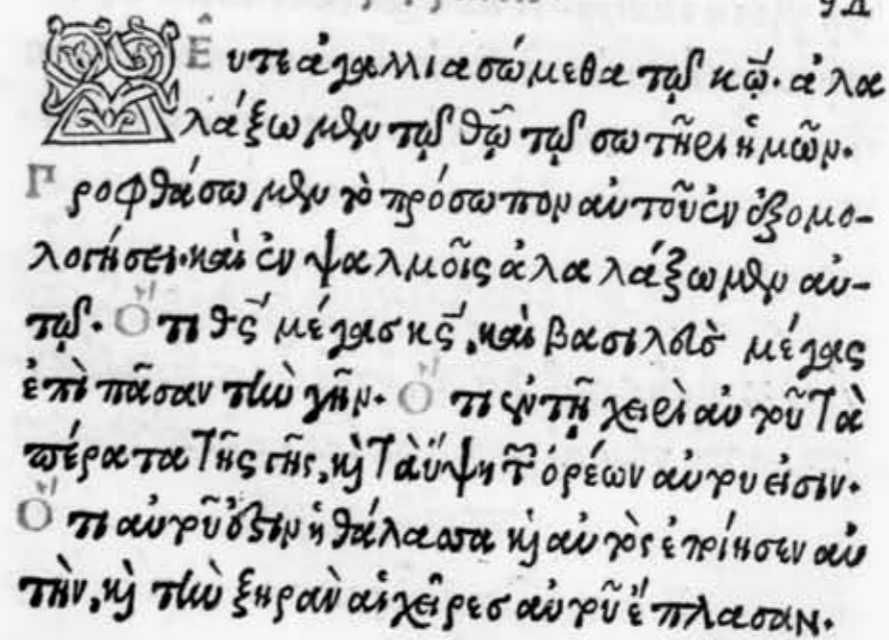 Δεῦτε ἀγαλλιασώμεθα τῷ κῷ. ἀλα
λάξωμεν τῷ θῷ τῷ σωτῆρι ἡμῶν.
Προφθάσωμεν τὸ πρόσωπον αὐτοῦ ἐν ἐξομο-
λογήσει. καὶ ἐν ψαλμοῖς ἀλαλάξωμεν αὐ-
τῷ. Ὅτι θς μέγας κς, καὶ βασιλεὺς μέγας
ἐπὶ πᾶσαν τὴν γῆν. Ὅτι ἐν τῇ χειρὶ αὐτοῦ τὰ
πέρατα τῆς γῆς, κὶ τὰ ὕψη τῶν ὀρέων αὐτου εἰσιν.
Ὅτι αὐτοῦ ἐστιν ἡ θάλασσα κὶ αὐτὸς ἐποίησεν αὐ
τὴν, κὶ τὴν ξηρὰν αἱ χεῖρες αὐτοῦ ἔπλασαν.